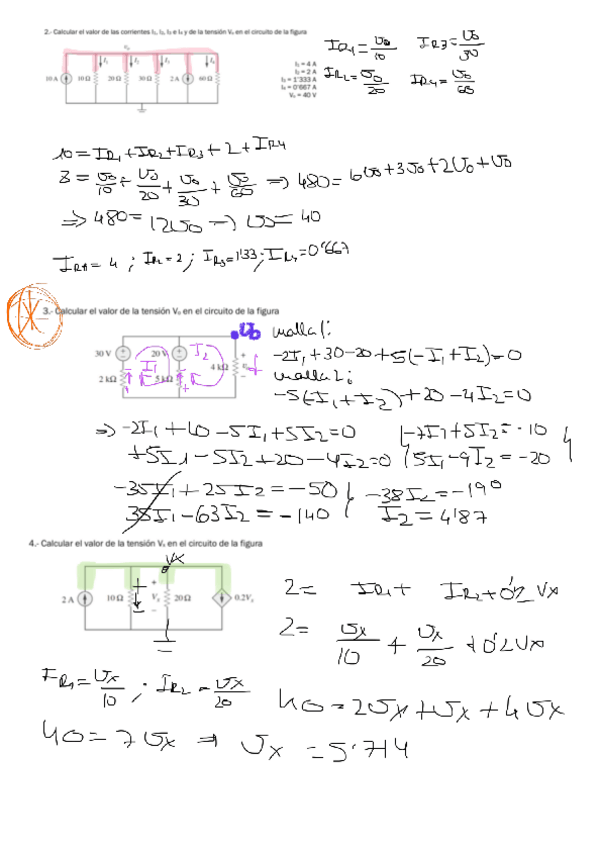 2.- Calcular el valor de las corrientes I₁, I₂, I₃ e I₄ y de la tensión Vₒ en el circuito de la figura
Vₒ
I₁ I₂ I₃ I₄
10 A 10 Ω 20 Ω 30 Ω 2 A 60 Ω
I₁ = 4 A
I₂ = 2 A
I₃ = 1'333 A
I₄ = 0'667 A
Vₒ = 40 V
IR₁ = Uo/10 IR3 = Uo/30
IR₂ = Uo/20 IR4 = Uo/60
10 = IR₁ + IR₂ + IR₃ + 2 + IR4
8 = Uo/10 + Uo/20 + Uo/30 + Uo/60 => 480 = 6Uo + 3Uo + 2Uo + Uo
=> 480 = 12Uo -> Uo = 40
IR1 = 4 ; IR2 = 2 ; IR3 = 1'33 ; IR4 = 0'667
3.- Calcular el valor de la tensión Vₒ en el circuito de la figura
Uo
30 V 20 V I₁ I₂ 4 kΩ
2 kΩ 5 kΩ
malla 1:
-2I₁ + 30 - 20 + 5(-I₁ + I₂) = 0
malla 2:
-5(-I₁ + I₂) + 20 - 4I₂ = 0
=> -2I₁ + 10 - 5I₁ + 5I₂ = 0 -7I₁ + 5I₂ = -10
+5I₁ - 5I₂ + 20 - 4I₂ = 0 5I₁ - 9I₂ = -20
-35I₁ + 25I₂ = -50 -38I₂ = -190
35I₁ - 63I₂ = -140 I₂ = 4'87
4.- Calcular el valor de la tensión Vₒ en el circuito de la figura
Vx
2 A 10 Ω Vₒ 20 Ω 0.2Vₒ
2 = IR₁ + IR₂ + 0'2 Vx
2 = Ux/10 + Ux/20 + 0'2Ux
IR₁ = Ux/10 ; IR₂ = Ux/20
40 = 2Ux + Ux + 4Ux
40 = 7Ux => Ux = 5'714